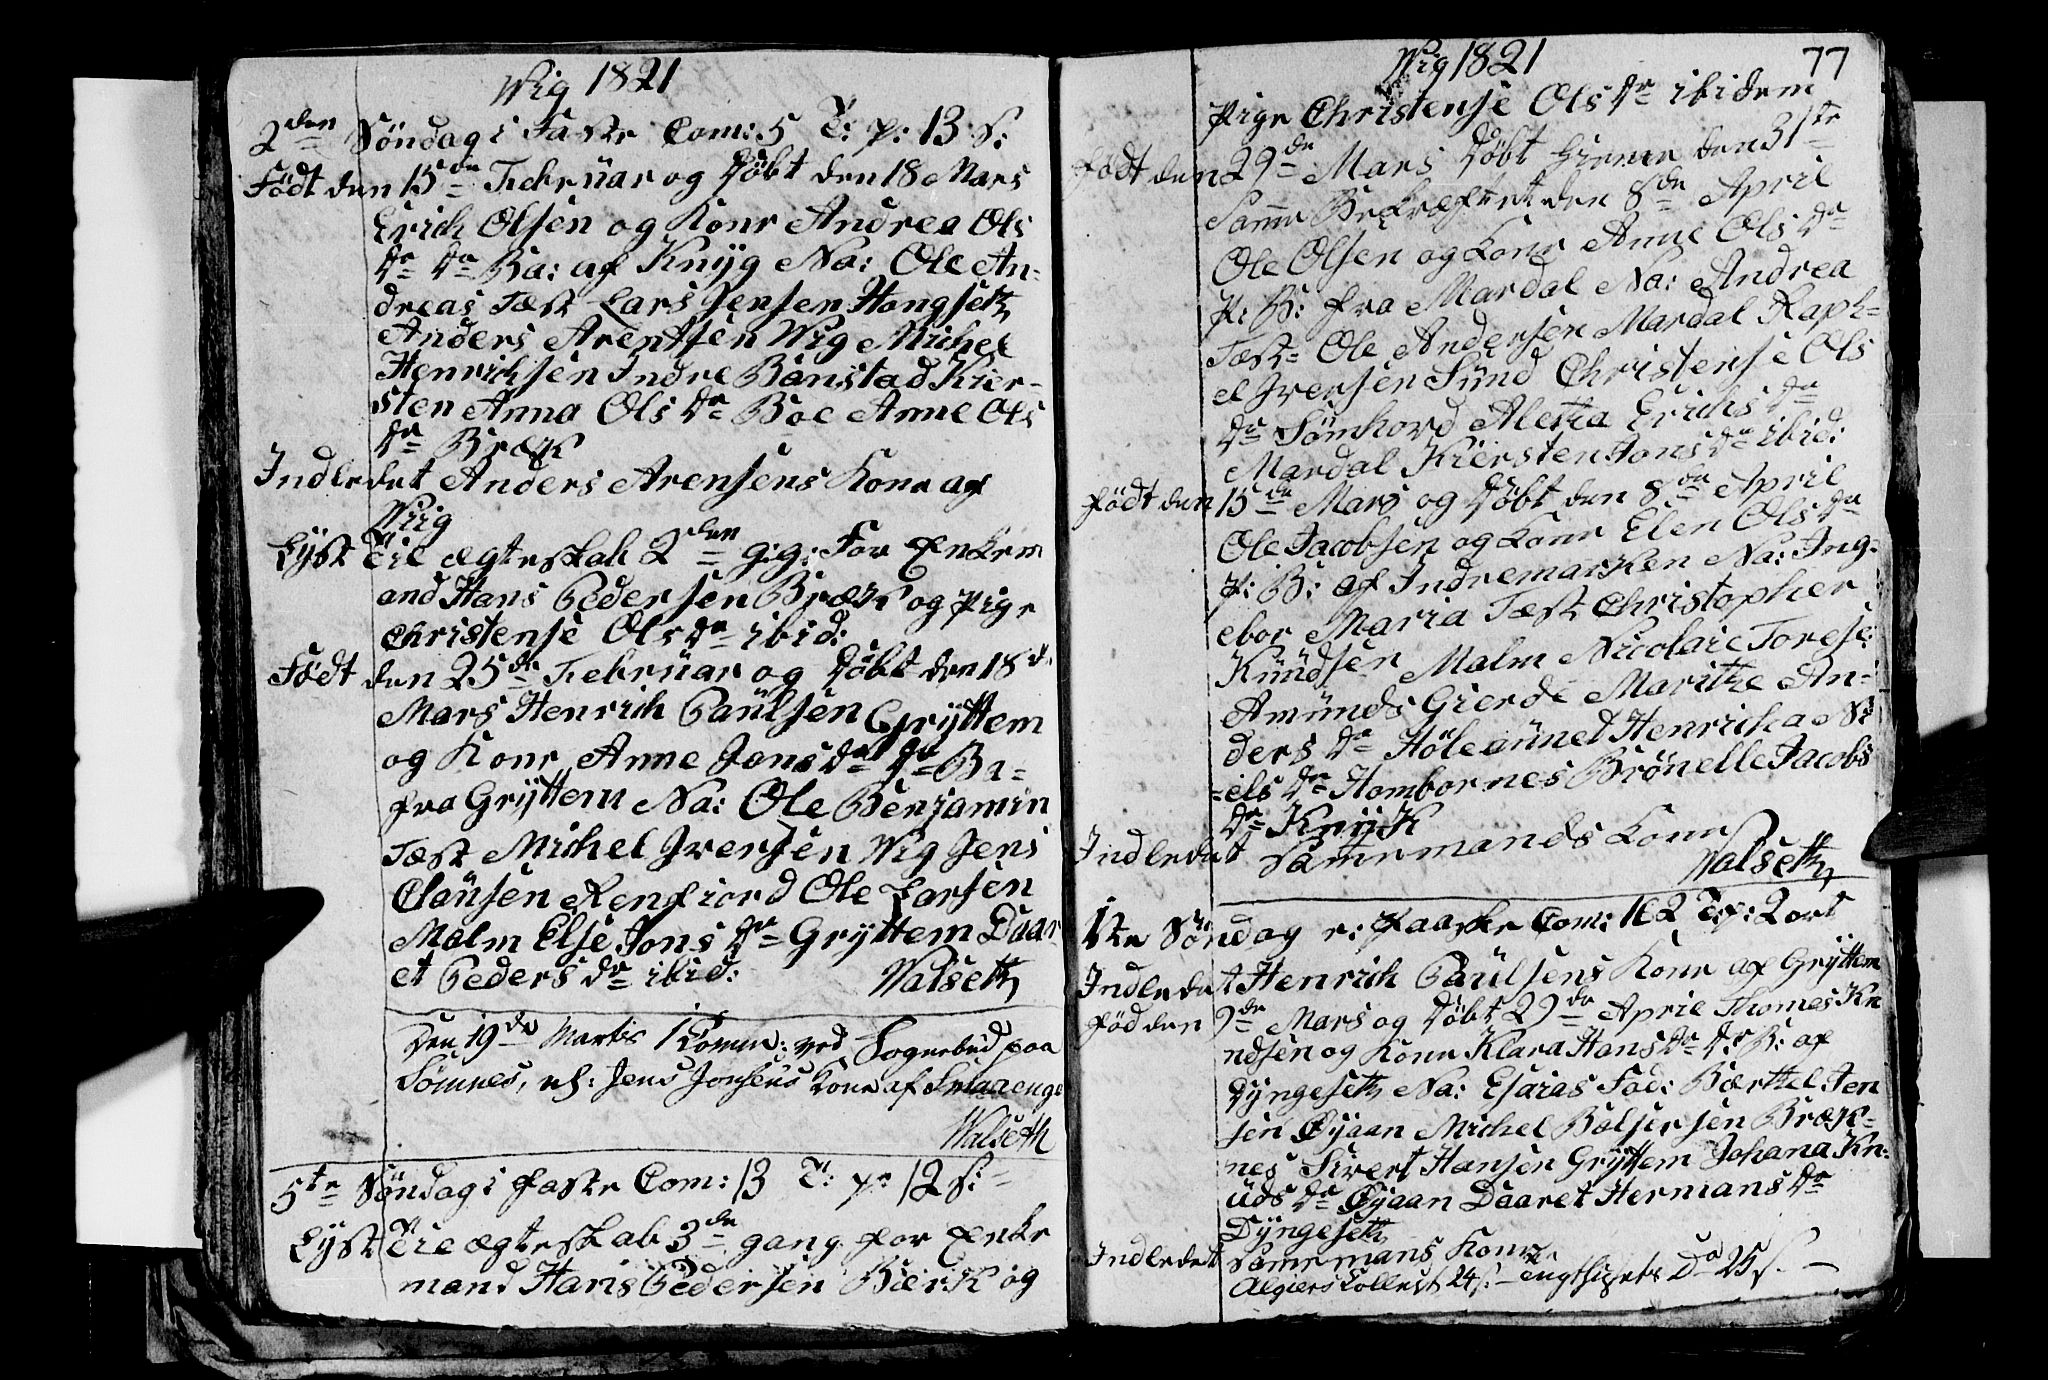 Wig 1821
2den Söndag i Faste Com: 5 T: p: 13 S:
Födt den 15de Februar og Döbt den 18 Mars
Erich Olsen og Kone Andrea Ols
Dr Dr Ba: af Knyg Na: Ole An-
dreas Tæst Lars Jensen Hongseth
Anders Arentsen Wig Michel
Henrichsen Indre Bönstad Kier-
sten Anna Ols Dr Boe Anne Ols
Dr Bræk
Indledet Anders Arensens Kone af
Wiig
Lyst Til ægteskab 2den g:g: For Enkem
and Hans Pedersen Bræk og Pige
Christense Ols Dr ibid:
Födt den 25de Februar og Döbt den 18d
Mars Henrich Paulsen Gryttem
og Kone Anne Jons Dr Dr Ba-
fra Gryttem Na: Ole Benjamin
Tæst Michel Iversen Wig Jens
Clausen Renfiord Ole Larsen
Malm Else Jons Dr Gryttem Daar
et Peders Dr ibid: Valseth
Den 19de Martis 1 Comm: ved Sognebud paa
Sömnes, nl: Jens Jonsens Kone af Smaaenge
Walseth
5te Söndag i faste Com: 13 T: p: 12 S:
Lyst Til ægteskab 3de gang for Enke
mand Hans Pedersen Bærk og
Wig 1821 77
Pige Christense Ols Dr ibidem
födt den 29de Mars Döbt hieme den 31te
Samme Bekræftet den 8de April
Ole Olsen og Kone Anne Ols Dr
P: B: fra Mardal Na: Andrea
Tæst Ole Andersen Mardal Raph-
el Iversen Sund Christense Ols
Dr Sömhovd Aleta Erichs Dr
Mardal Kiersten Jons Dr ibid:
födt den 15de Mars og Döbt den 8de April
Ole Jacobsen og Kone Elen Ols Dr
P: B: af Indremarken Na: Ing-
ebor Maria Tæst Christopher
Knudsen Malm Nicolaie Torese:
Amunds Gierde Maritze An-
ders Dr Höleaunet Henricha Ni
els Dr Hombornes Brönelle Jacobs
Dr Knyk
Indledet Sammemands Kone
Valseth
1te Söndag e: paaske Com: 162 T: p: 2 ort
Indledet Henrich Paulsens Kone af Gryttem
föd den 9de Mars og Döbt 29de April Thomes Kn
udsen og Kone Klara Hans Dr Dr B: af
Dyngeseth Na: Esaias Fad: Bærthel Jen
sen Öyaan Michel Balsersen Bræk-
nes Sivert Hansen Gryttem Johana Kn-
uds Dr Öyaan Daaret Hermans Dr
Dyngeseth
Indledet Sammemans Kone
Algiers Collect 24 s. Do 25 s.